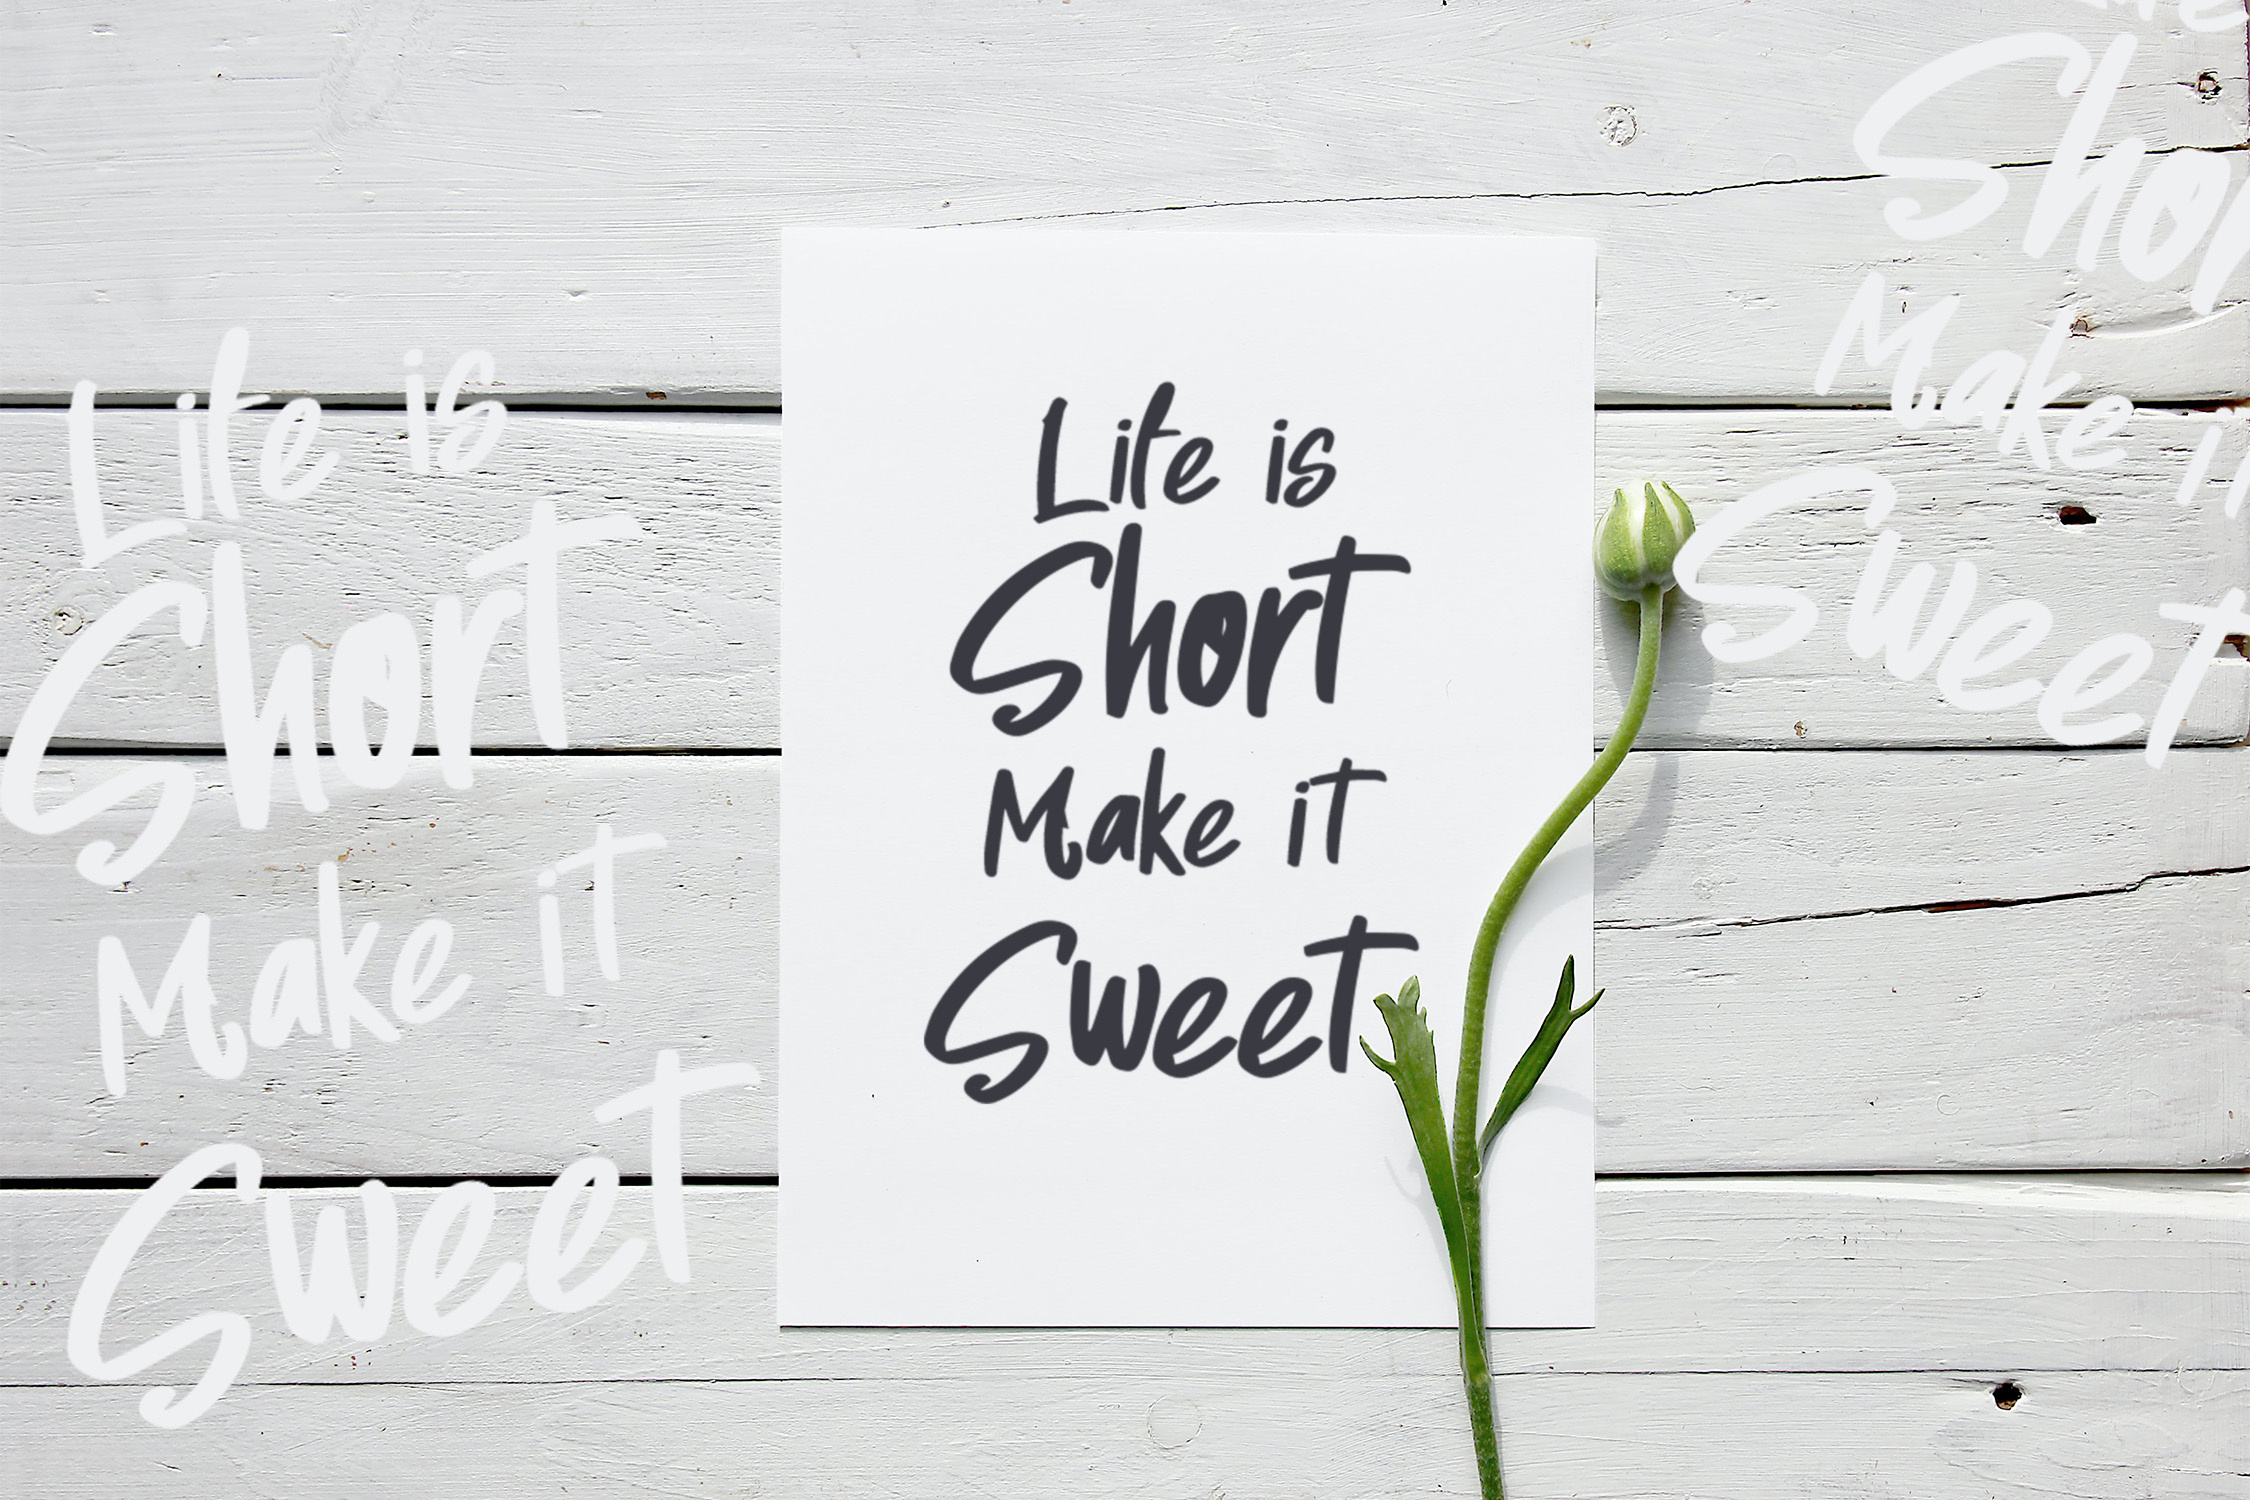 Life is
Short
Make it
Sweet
Life is
Short
Make it
Sweet
Make it
Sweet